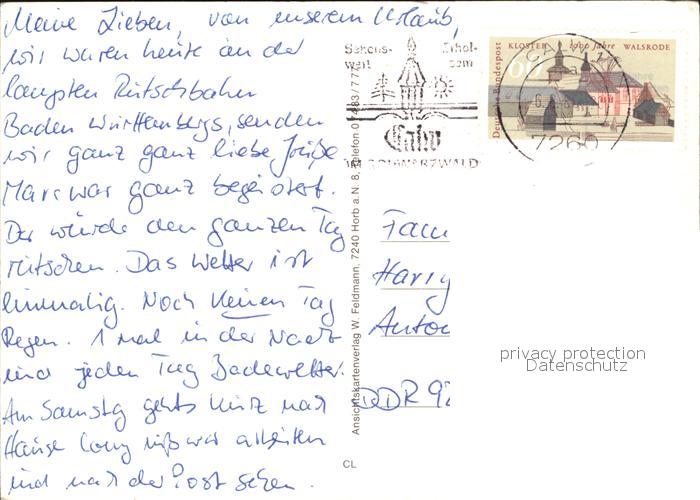 Meine Lieben, von unserem Urlaub,
wir waren heute an der
längsten Rutschbahn
Baden Württembergs, senden
wir ganz ganz liebe Grüße
Marc war ganz begeistert.
Der würde den ganzen Tag
rutschen. Das Wetter ist
einmalig. Noch keinen Tag
Regen. 1 mal in der Nacht
und jeden Tag Badewetter.
Am Samstag gehts kurz nach
Hause Cony muß was arbeiten
und nach der Post sehen.
Sehens-
wert
Erhol-
sam
Calw
SCHWARZWALD
7260
Deutsche Bundespost
60
KLOSTER 1000 Jahre WALSRODE
Ansichtskartenverlag W. Feldmann, 7240 Horb a. N. 8, Telefon 07483/777
CL
Fam
Harry
Anton
DDR 92
privacy protection
Datenschutz